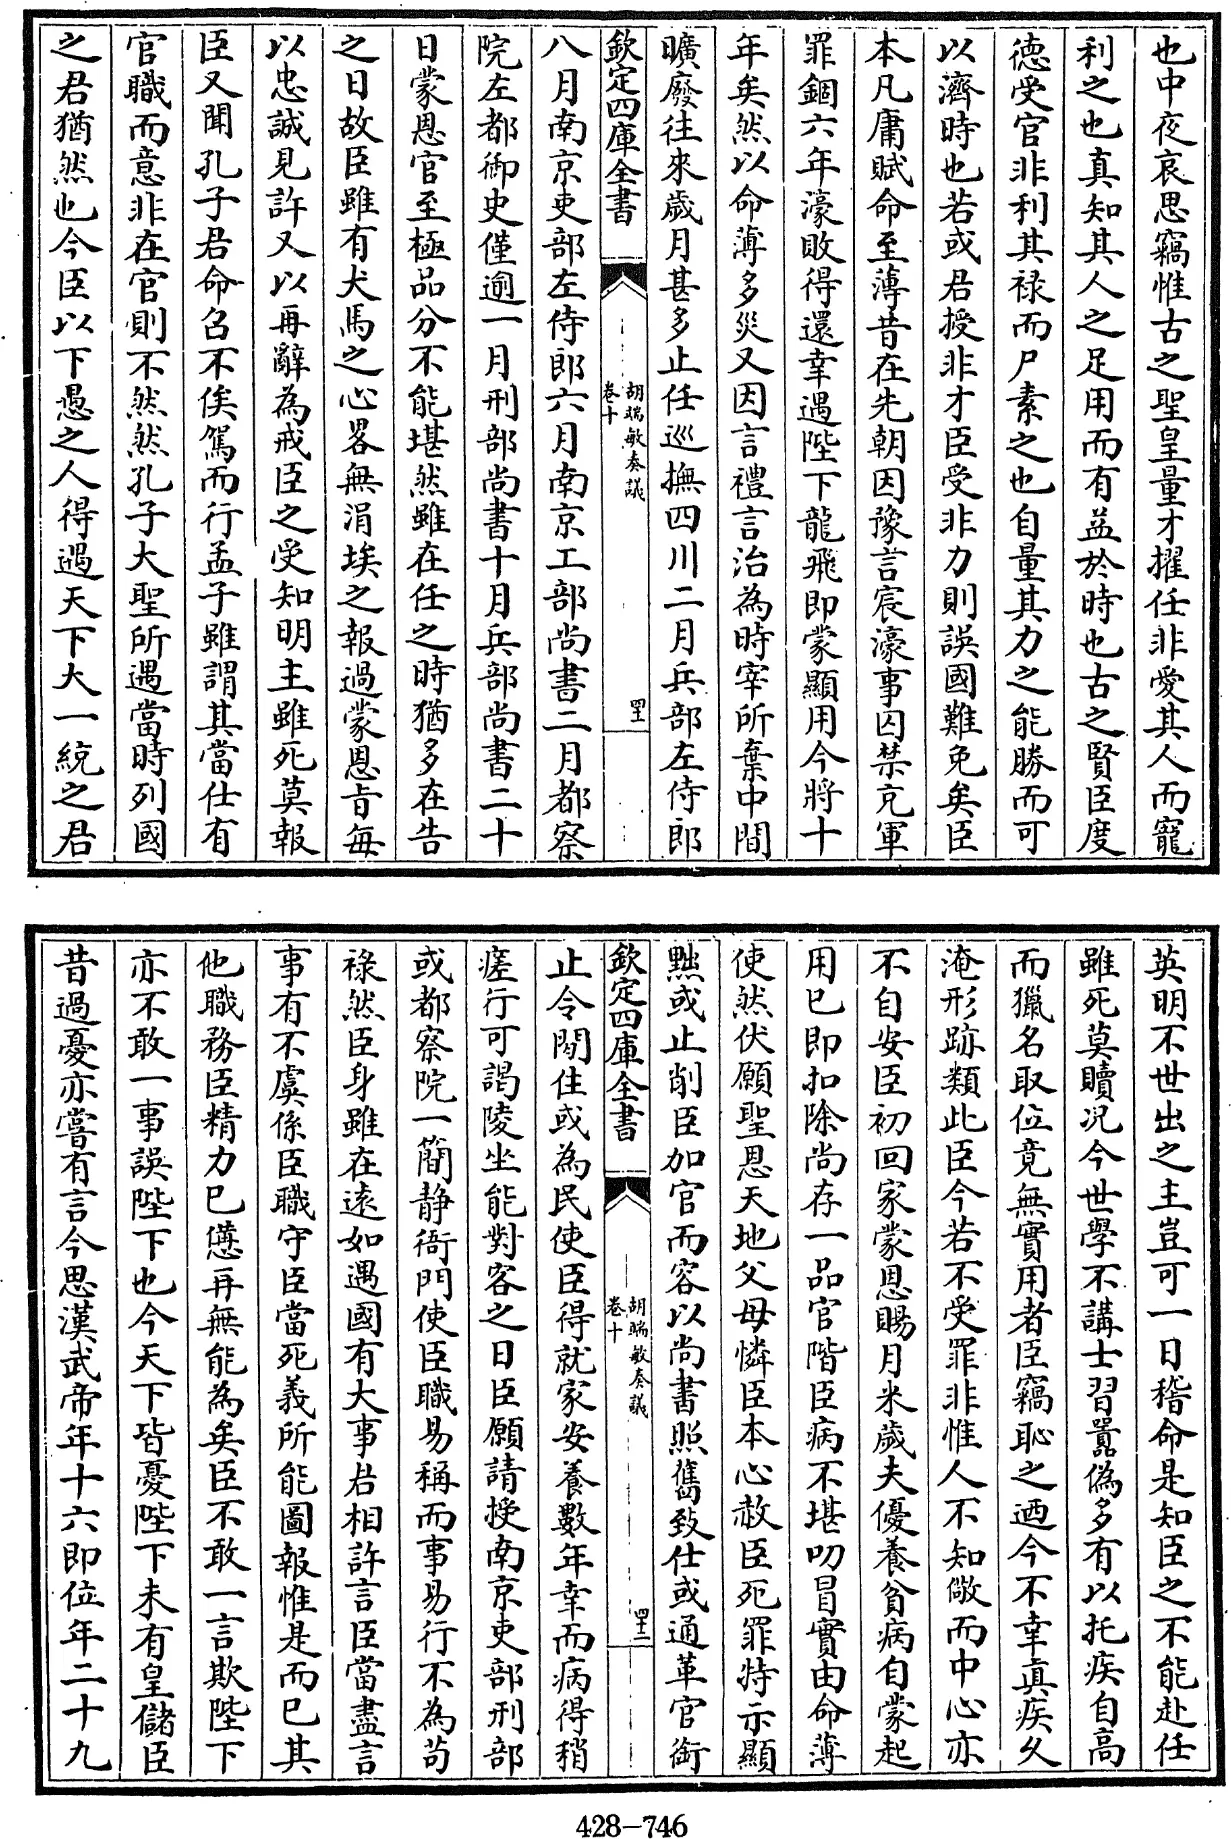 也中夜哀思竊惟古之聖皇量才擢任非愛其人而寵
利之也真知其人之足用而有益於時也古之賢臣度
德受官非利其祿而尸素之也自量其力之能勝而可
以濟時也若或君授非才臣受非力則誤國難免矣臣
本凡庸賦命至薄昔在先朝因豫言宸濠事囚禁充軍
罪錮六年濠敗得還幸遇陛下龍飛即蒙顯用今將十
年矣然以命薄多災又因言禮言治為時宰所棄中間
曠廢往來歲月甚多止任巡撫四川二月兵部左侍郎
欽定四庫全書
胡端敏奏議
卷十
四十一
八月南京吏部左侍郎六月南京工部尚書二月都察
院左都御史僅逾一月刑部尚書十月兵部尚書二十
日蒙恩官至極品分不能堪然雖在任之時猶多在告
之日故臣雖有犬馬之心畧無涓埃之報過蒙恩旨每
以忠誠見許又以再辭為戒臣之受知明主雖死莫報
臣又聞孔子君命召不俟駕而行孟子雖謂其當仕有
官職而意非在官則不然然孔子大聖所遇當時列國
之君猶然也今臣以下愚之人得遇天下大一統之君
英明不世出之主豈可一日稽命是知臣之不能赴任
雖死莫贖况今世學不講士習嚚偽多有以托疾自高
而獵名取位竟無實用者臣竊恥之迺今不幸真疾久
淹形跡類此臣今若不受罪非惟人不知儆而中心亦
不自安臣初回家蒙恩賜月米歲夫優養貧病自蒙起
用已即扣除尚存一品官階臣病不堪叨冒實由命薄
使然伏願聖恩天地父母憐臣本心赦臣死罪特示顯
黜或止削臣加官而容以尚書照舊致仕或通革官銜
欽定四庫全書
胡端敏奏議
卷十
四十二
止令閒住或為民使臣得就家安養數年幸而病得稍
瘥行可謁陵坐能對客之日臣願請授南京吏部刑部
或都察院一簡静衙門使臣職易稱而事易行不為苟
祿然臣身雖在遠如遇國有大事君相許言臣當盡言
事有不虞係臣職守臣當死義所能圖報惟是而已其
他職務臣精力已憊再無能為矣臣不敢一言欺陛下
亦不敢一事誤陛下也今天下皆憂陛下未有皇儲臣
昔過憂亦嘗有言今思漢武帝年十六即位年二十九
428-746